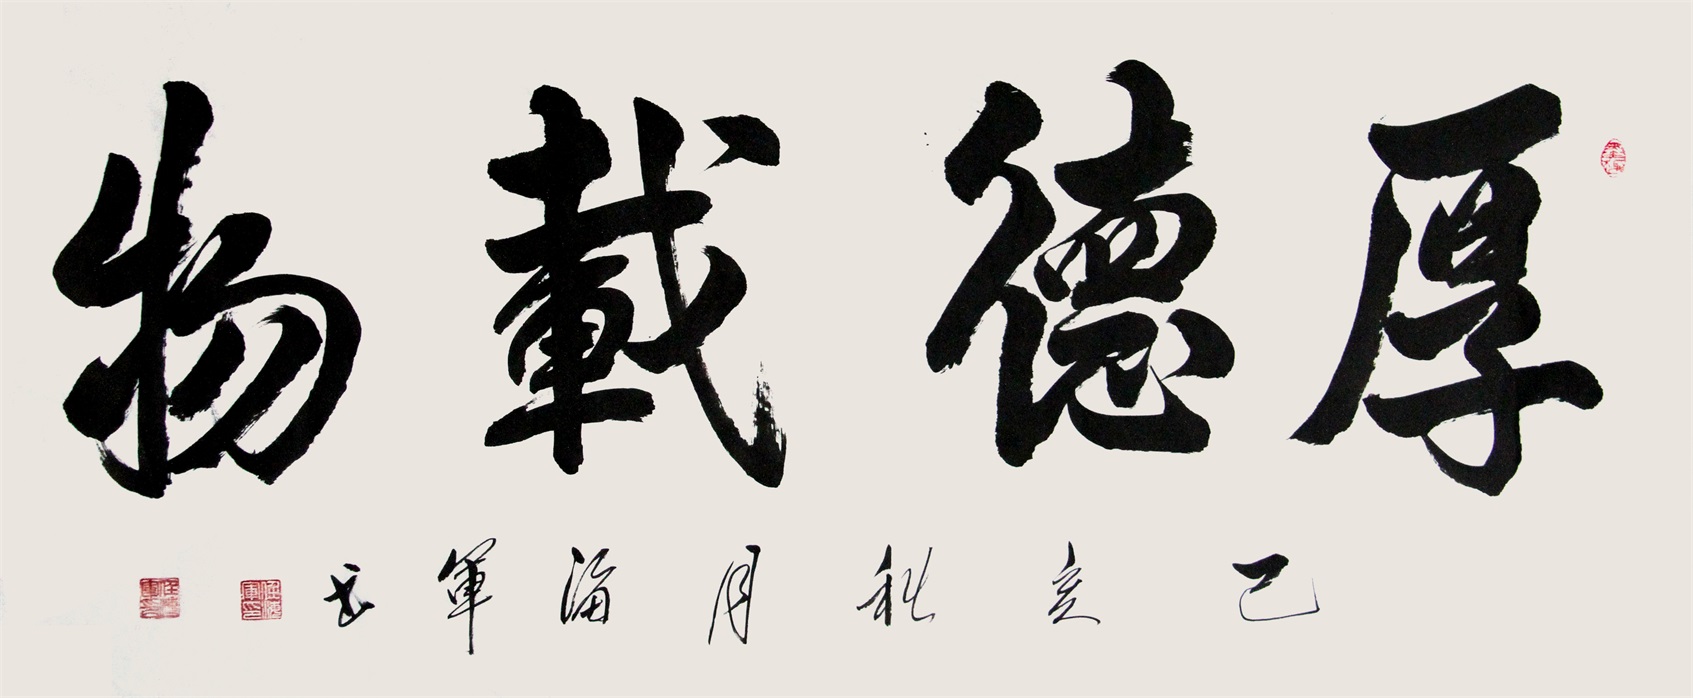 厚德載物
己亥秋月海軍书